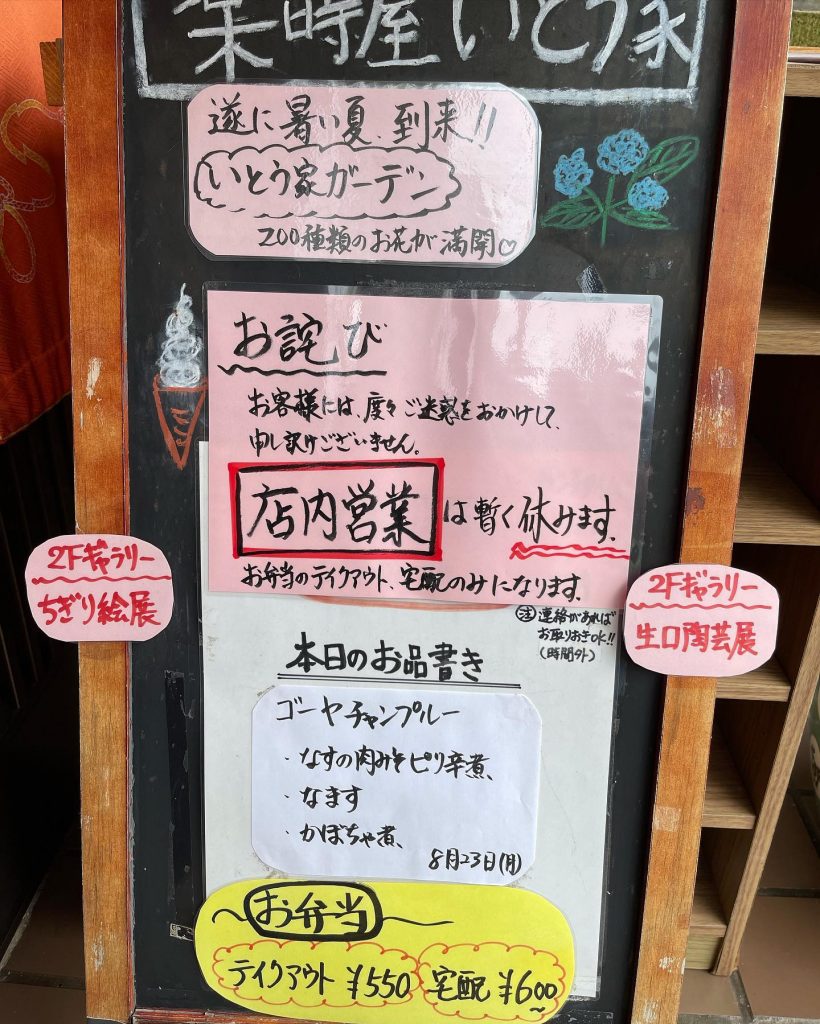 時屋 いとう家
遂に暑い夏、到来!!
いとう家ガーデン
200種類のお花が満開♡
お詫び
お客様には、度々ご迷惑をおかけして、
申し訳けございません。
店内営業は暫く休みます。
お弁当のテイクアウト、宅配のみになります。
㊟連絡があれば
お取りおきOK!!
(時間外)
2Fギャラリー
ちぎり絵展
2Fギャラリー
生口陶芸展
本日のお品書き
ゴーヤチャンプルー
・なすの肉みそピリ辛煮、
・なます
・かぼちゃ煮、
8月23日(月)
~お弁当~
テイクアウト ¥550 宅配 ¥600~